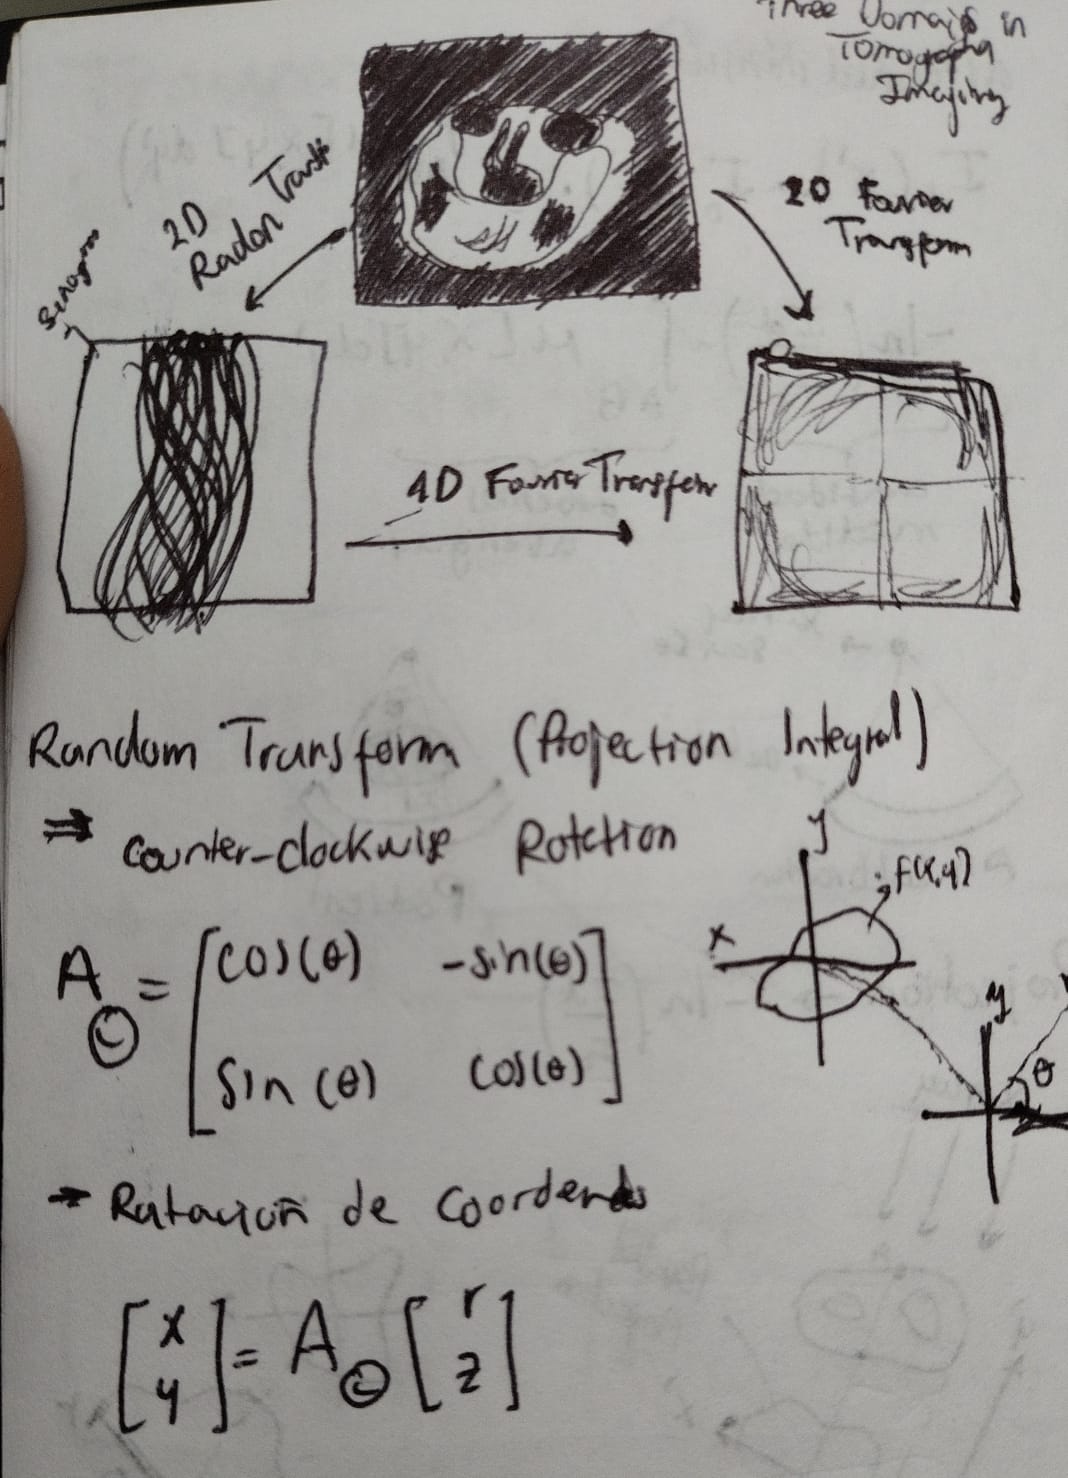 Three Domains in
Tomogapha
Imajing
2D
Radon Transf
2D Fourier
Transform
Sinogram
1D Fourier Transform
Random Transform (Projection Integral)
⇒ Counter-clockwise Rotation
A_θ = [cos(θ) -sin(θ)
sin(θ) cos(θ)]
y
f(x,y)
x
y
θ
→ Rotación de Coordendas
[x
y] = A_θ [r
z]